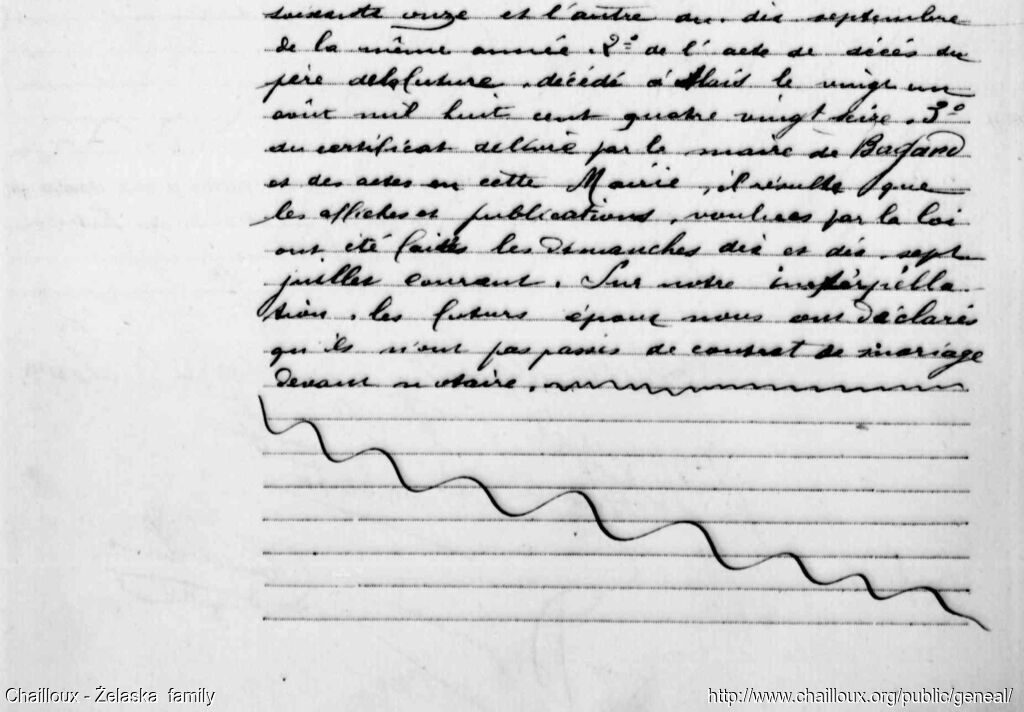 soixante onze et l'autre du dix septembre
de la même année. 2° de l'acte de décès du
père de la future, décédé à Alais le vingt un
août mil huit cent quatre vingt seize. 3°
du certificat délivré par le maire de Bagard
et des actes en cette Mairie, il résulte que
les affiches et publications, voulues par la loi
ont été faites les dimanches dix et dix-sept
juillet courant. Sur notre interpella
tion, les futurs époux nous ont déclarés
qu'ils n'ont pas passés de contrat de mariage
devant notaire.
Chailloux - Želaska family
http://www.chailloux.org/public/geneal/